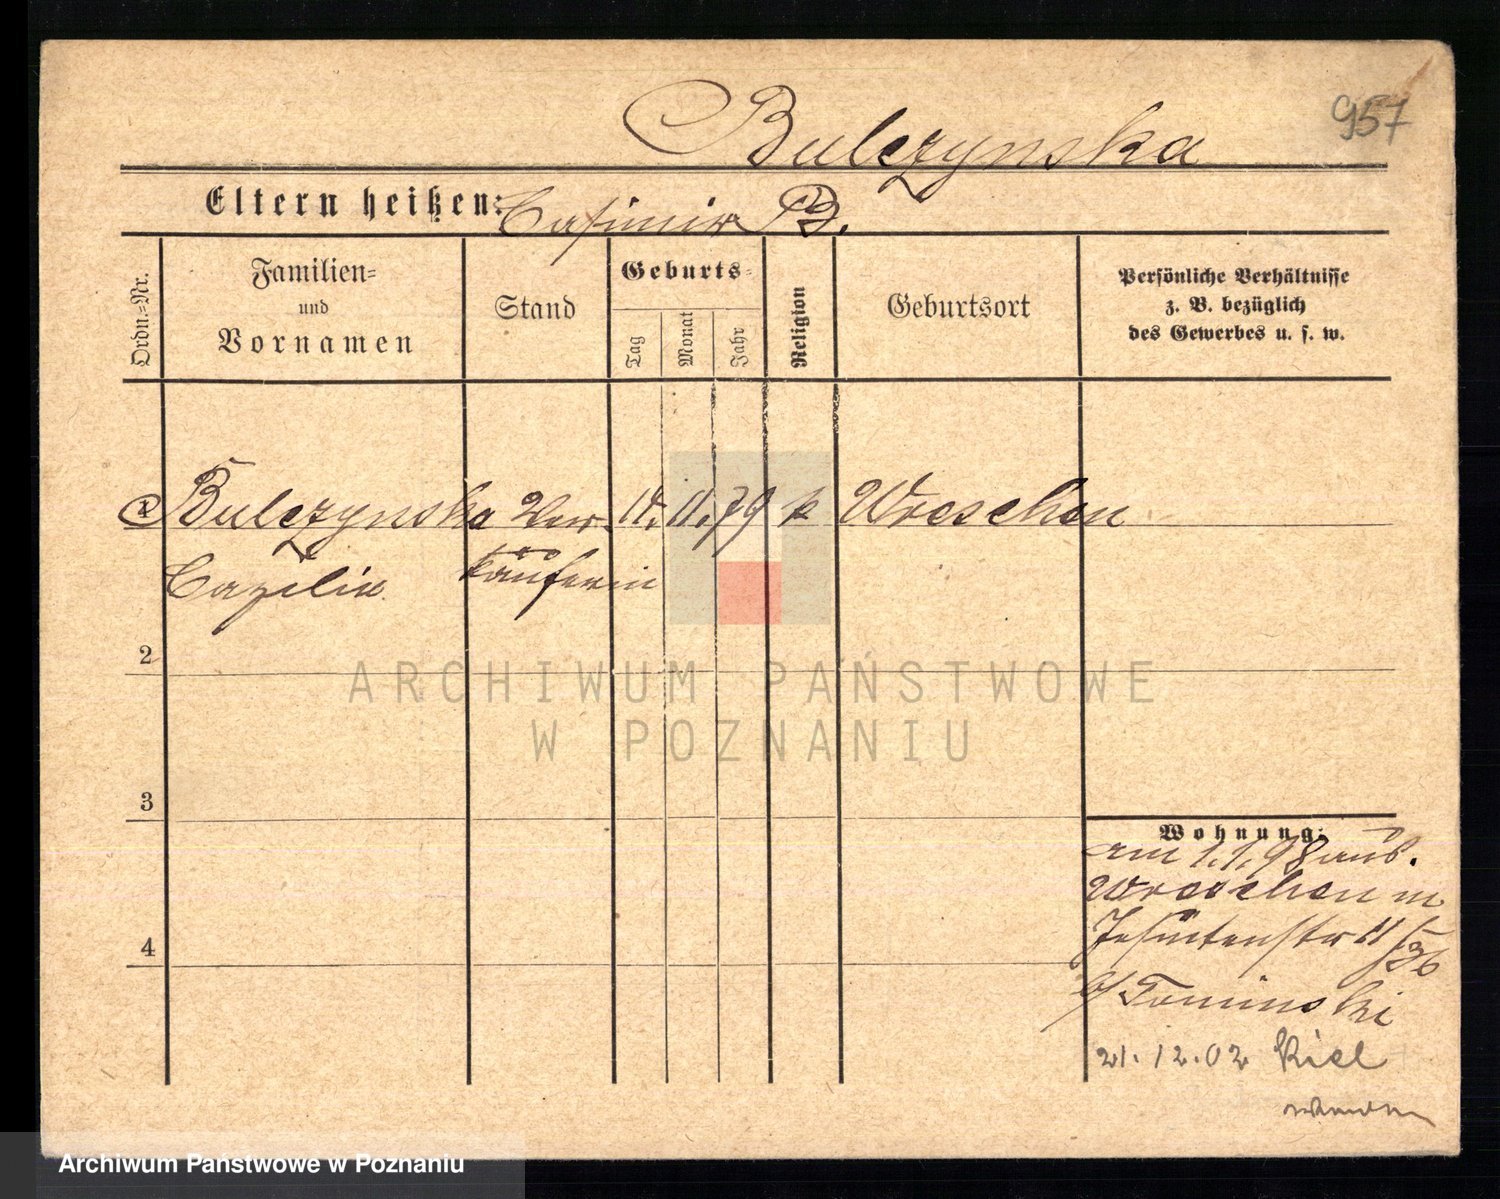 957
Bulczynska
Eltern heißen: Casimir B.
Ordn.=Nr.
Familien=
und
Vornamen
Stand
Geburts=
Tag
Monat
Jahr
Religion
Geburtsort
Persönliche Verhältnisse
z. B. bezüglich
des Gewerbes u. s. w.
1 Bulczynska Ver= 11. 79 k Wreschen
käuferin
2
ARCHIWUM PAŃSTWOWE
W POZNANIU
3
4
Wohnung:
am 1.1.98 aus.
Wreschen in
Jesuitenstr 11/36
b/ Tominski
21.12.02 Kiel
Archiwum Państwowe w Poznaniu